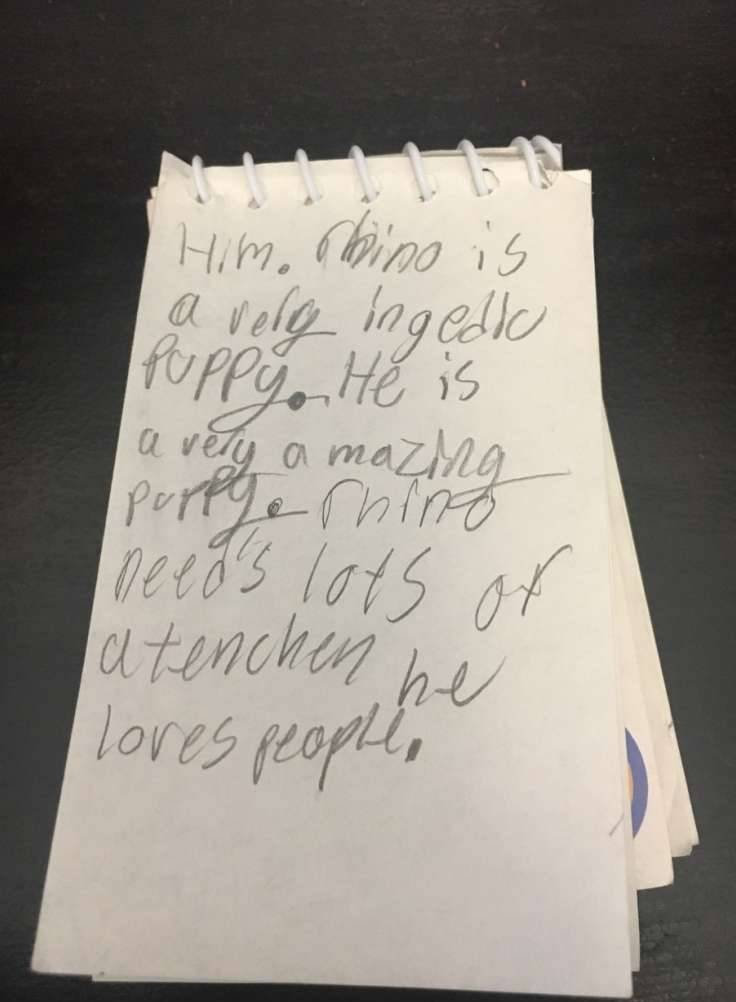 Him. rhino is
a very ingedic
puppy. He is
a very amazing
puppy. rhino
need's lots of
atenchen he
loves people.